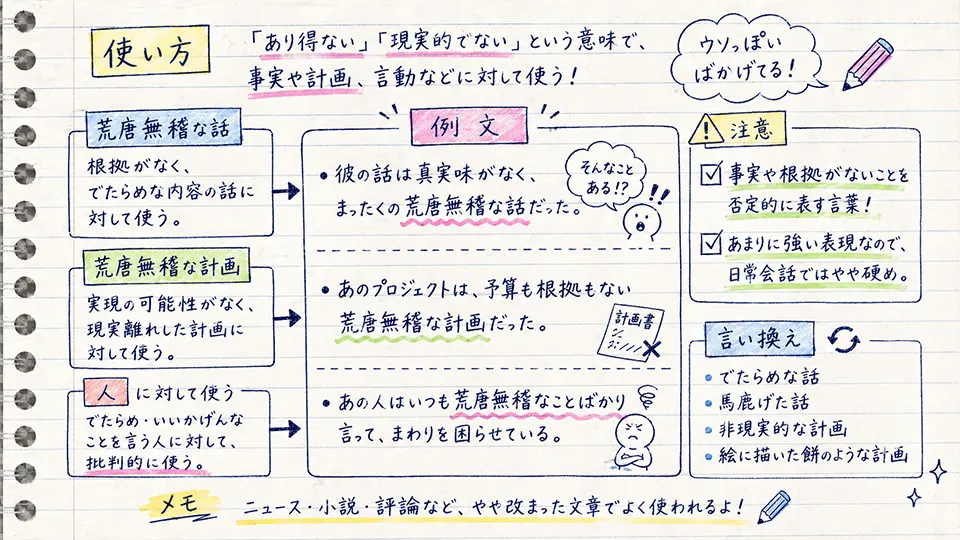 使い方
「あり得ない」「現実的でない」という意味で、
事実や計画、言動などに対して使う！
ウソっぽい
ばかげてる！
荒唐無稽な話
根拠がなく、
でたらめな内容の話に
対して使う。
荒唐無稽な計画
実現の可能性がなく、
現実離れした計画に
対して使う。
人に対して使う
でたらめ・いいかげんな
ことを言う人に対して、
批判的に使う。
例文
・彼の話は真実味がなく、
まったくの荒唐無稽な話だった。
そんなこと
ある!?
!!
・あのプロジェクトは、予算も根拠もない
荒唐無稽な計画だった。
計画書
・あの人はいつも荒唐無稽なことばかり
言って、まわりを困らせている。
注意
事実や根拠がないことを
否定的に表す言葉！
あまりに強い表現なので、
日常会話ではやや硬め。
言い換え
・でたらめな話
・馬鹿げた話
・非現実的な計画
・絵に描いた餅のような計画
メモ
ニュース・小説・評論など、やや改まった文章でよく使われるよ！